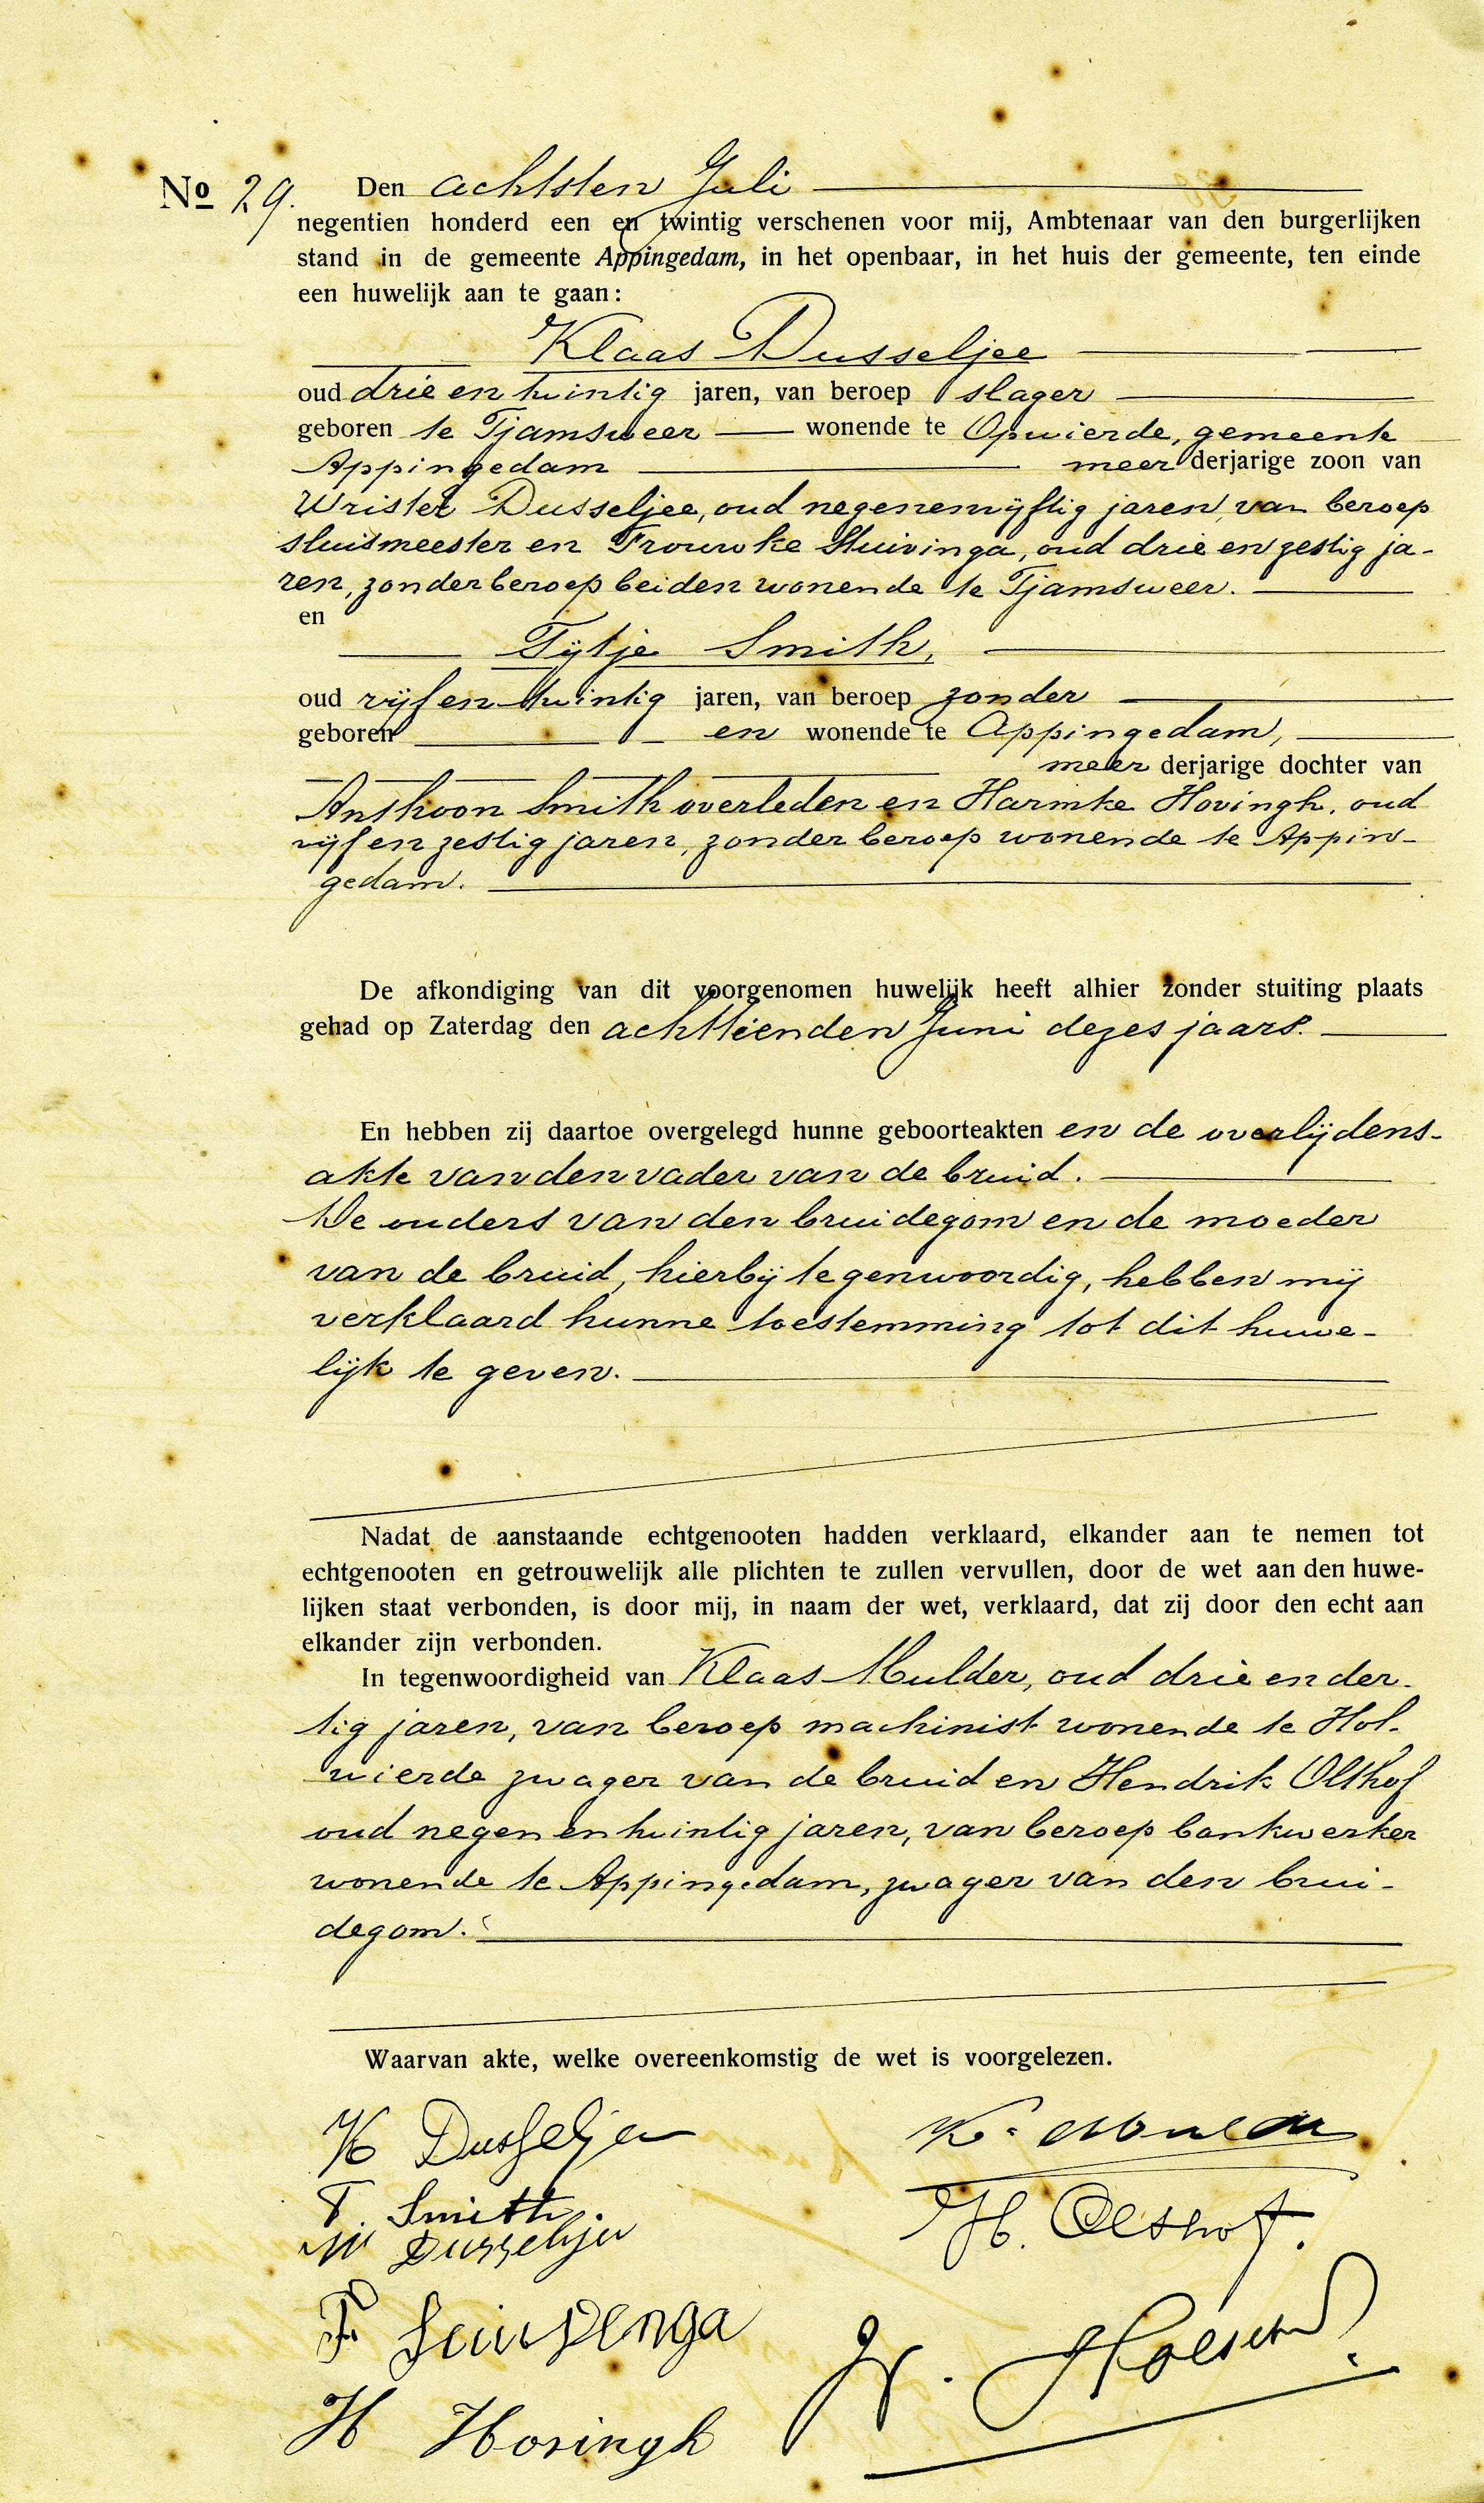 No 29. Den achtsten Juli
negentien honderd een en twintig verschenen voor mij, Ambtenaar van den burgerlijken
stand in de gemeente Appingedam, in het openbaar, in het huis der gemeente, ten einde
een huwelijk aan te gaan:
Klaas Dusseljee
oud drie en twintig jaren, van beroep slager
geboren te Tjamsweer wonende te Opwierde, gemeente
Appingedam meer derjarige zoon van
Wrister Dusseljee, oud negenenvijftig jaren, van beroep
sluismeester en Trouwke Stuivinga, oud drie en zestig ja-
ren, zonder beroep beiden wonende te Tjamsweer.
en
Tijtje Smith,
oud vijf en twintig jaren, van beroep zonder
geboren en wonende te Appingedam,
meer derjarige dochter van
Anthoon Smith overleden en Harmke Hovingh, oud
vijf en zestig jaren, zonder beroep wonende te Appin-
gedam.
De afkondiging van dit voorgenomen huwelijk heeft alhier zonder stuiting plaats
gehad op Zaterdag den achttienden Juni dezes jaars.
En hebben zij daartoe overgelegd hunne geboorteakten en de overlijdens-
akte van den vader van de bruid.
De ouders van den bruidegom en de moeder
van de bruid, hierbij tegenwoordig, hebben mij
verklaard hunne toestemming tot dit huwe-
lijk te geven.
Nadat de aanstaande echtgenooten hadden verklaard, elkander aan te nemen tot
echtgenooten en getrouwelijk alle plichten te zullen vervullen, door de wet aan den huwe-
lijken staat verbonden, is door mij, in naam der wet, verklaard, dat zij door den echt aan
elkander zijn verbonden.
In tegenwoordigheid van Klaas Mulder, oud drie en der-
tig jaren, van beroep machinist wonende te Hol-
wierde zwager van de bruid en Hendrik Olthof
oud negen en twintig jaren, van beroep bankwerker
wonende te Appingedam, zwager van den brui-
degom.
Waarvan akte, welke overeenkomstig de wet is voorgelezen.
K Dusseljee
K. Mulder
T. Smith.
W Dusseljee
H. Olthof.
F
H Hovingh